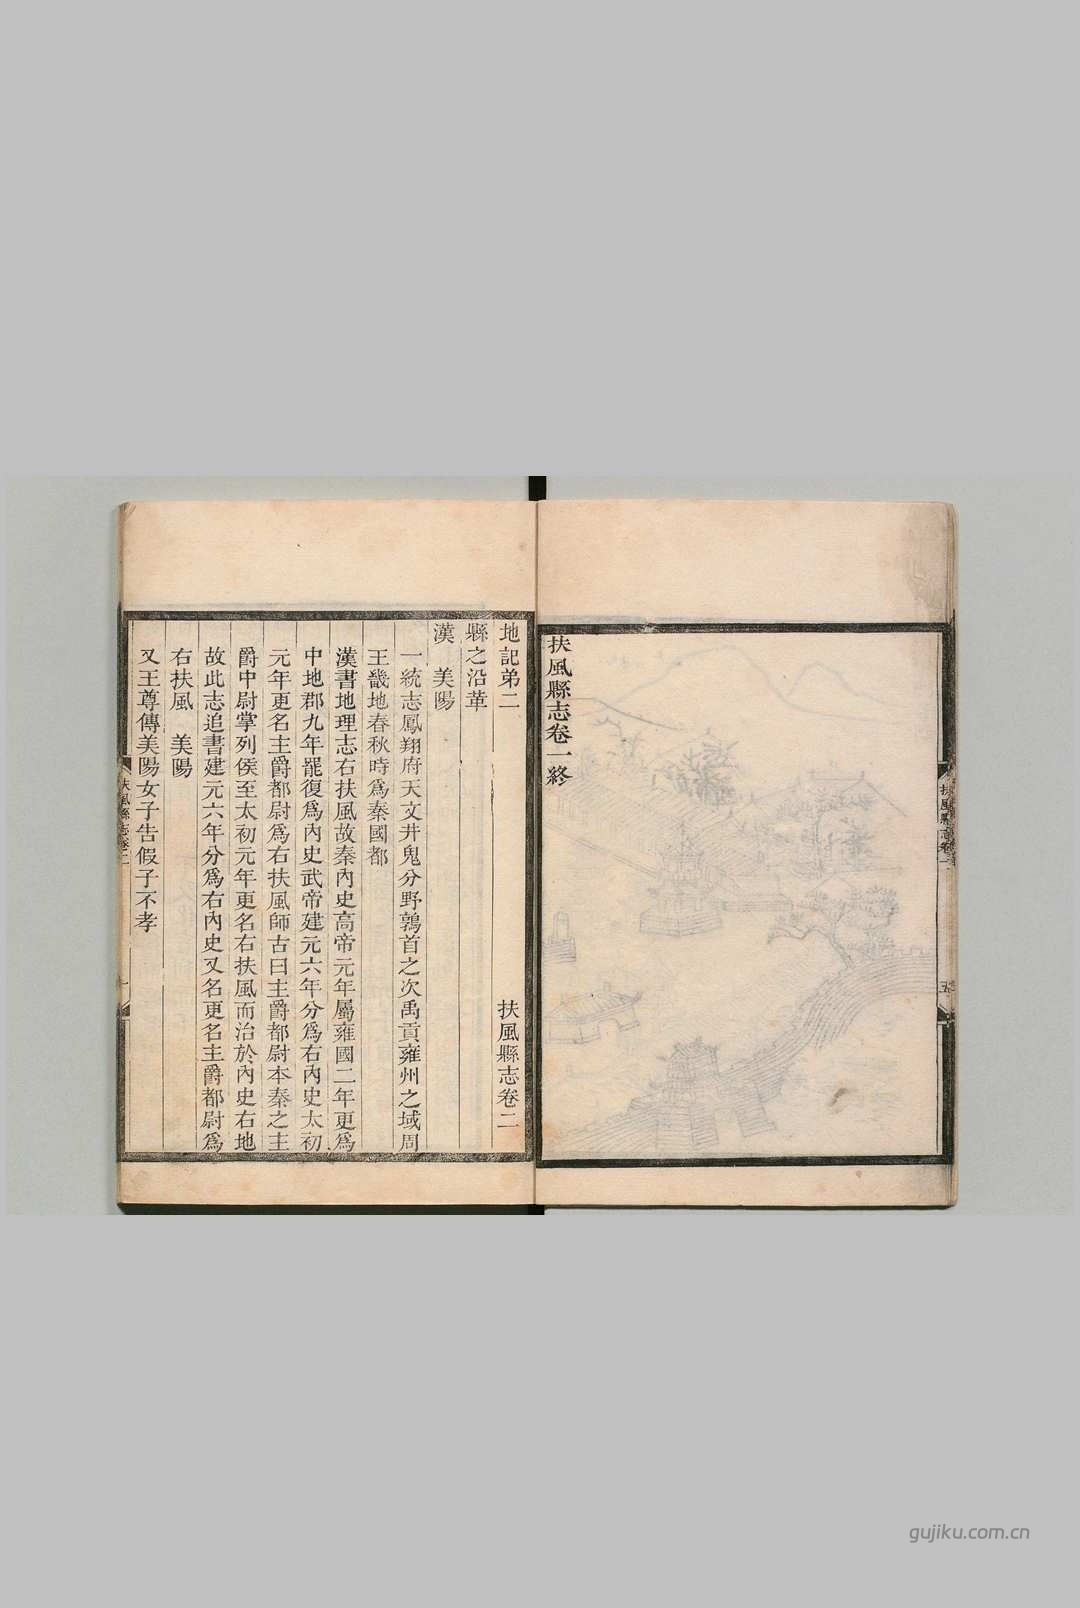 扶風縣志卷一終
扶風縣志卷一
五
地記弟二 扶風縣志卷二
縣之沿革
漢 美陽
一統志鳳翔府天文井鬼分野鶉首之次禹貢雍州之域周
王畿地春秋時爲秦國都
漢書地理志右扶風故秦內史高帝元年屬雍國二年更爲
中地郡九年罷復爲內史武帝建元六年分爲右內史太初
元年更名主爵都尉爲右扶風師古曰主爵都尉本秦之主
爵中尉掌列侯至太初元年更名右扶風而治於內史右地
故此志追書建元六年分爲右內史又名更名主爵都尉爲
右扶風 美陽
又王尊傳美陽女子告假子不孝
扶風縣志卷二
一
gujiku.com.cn